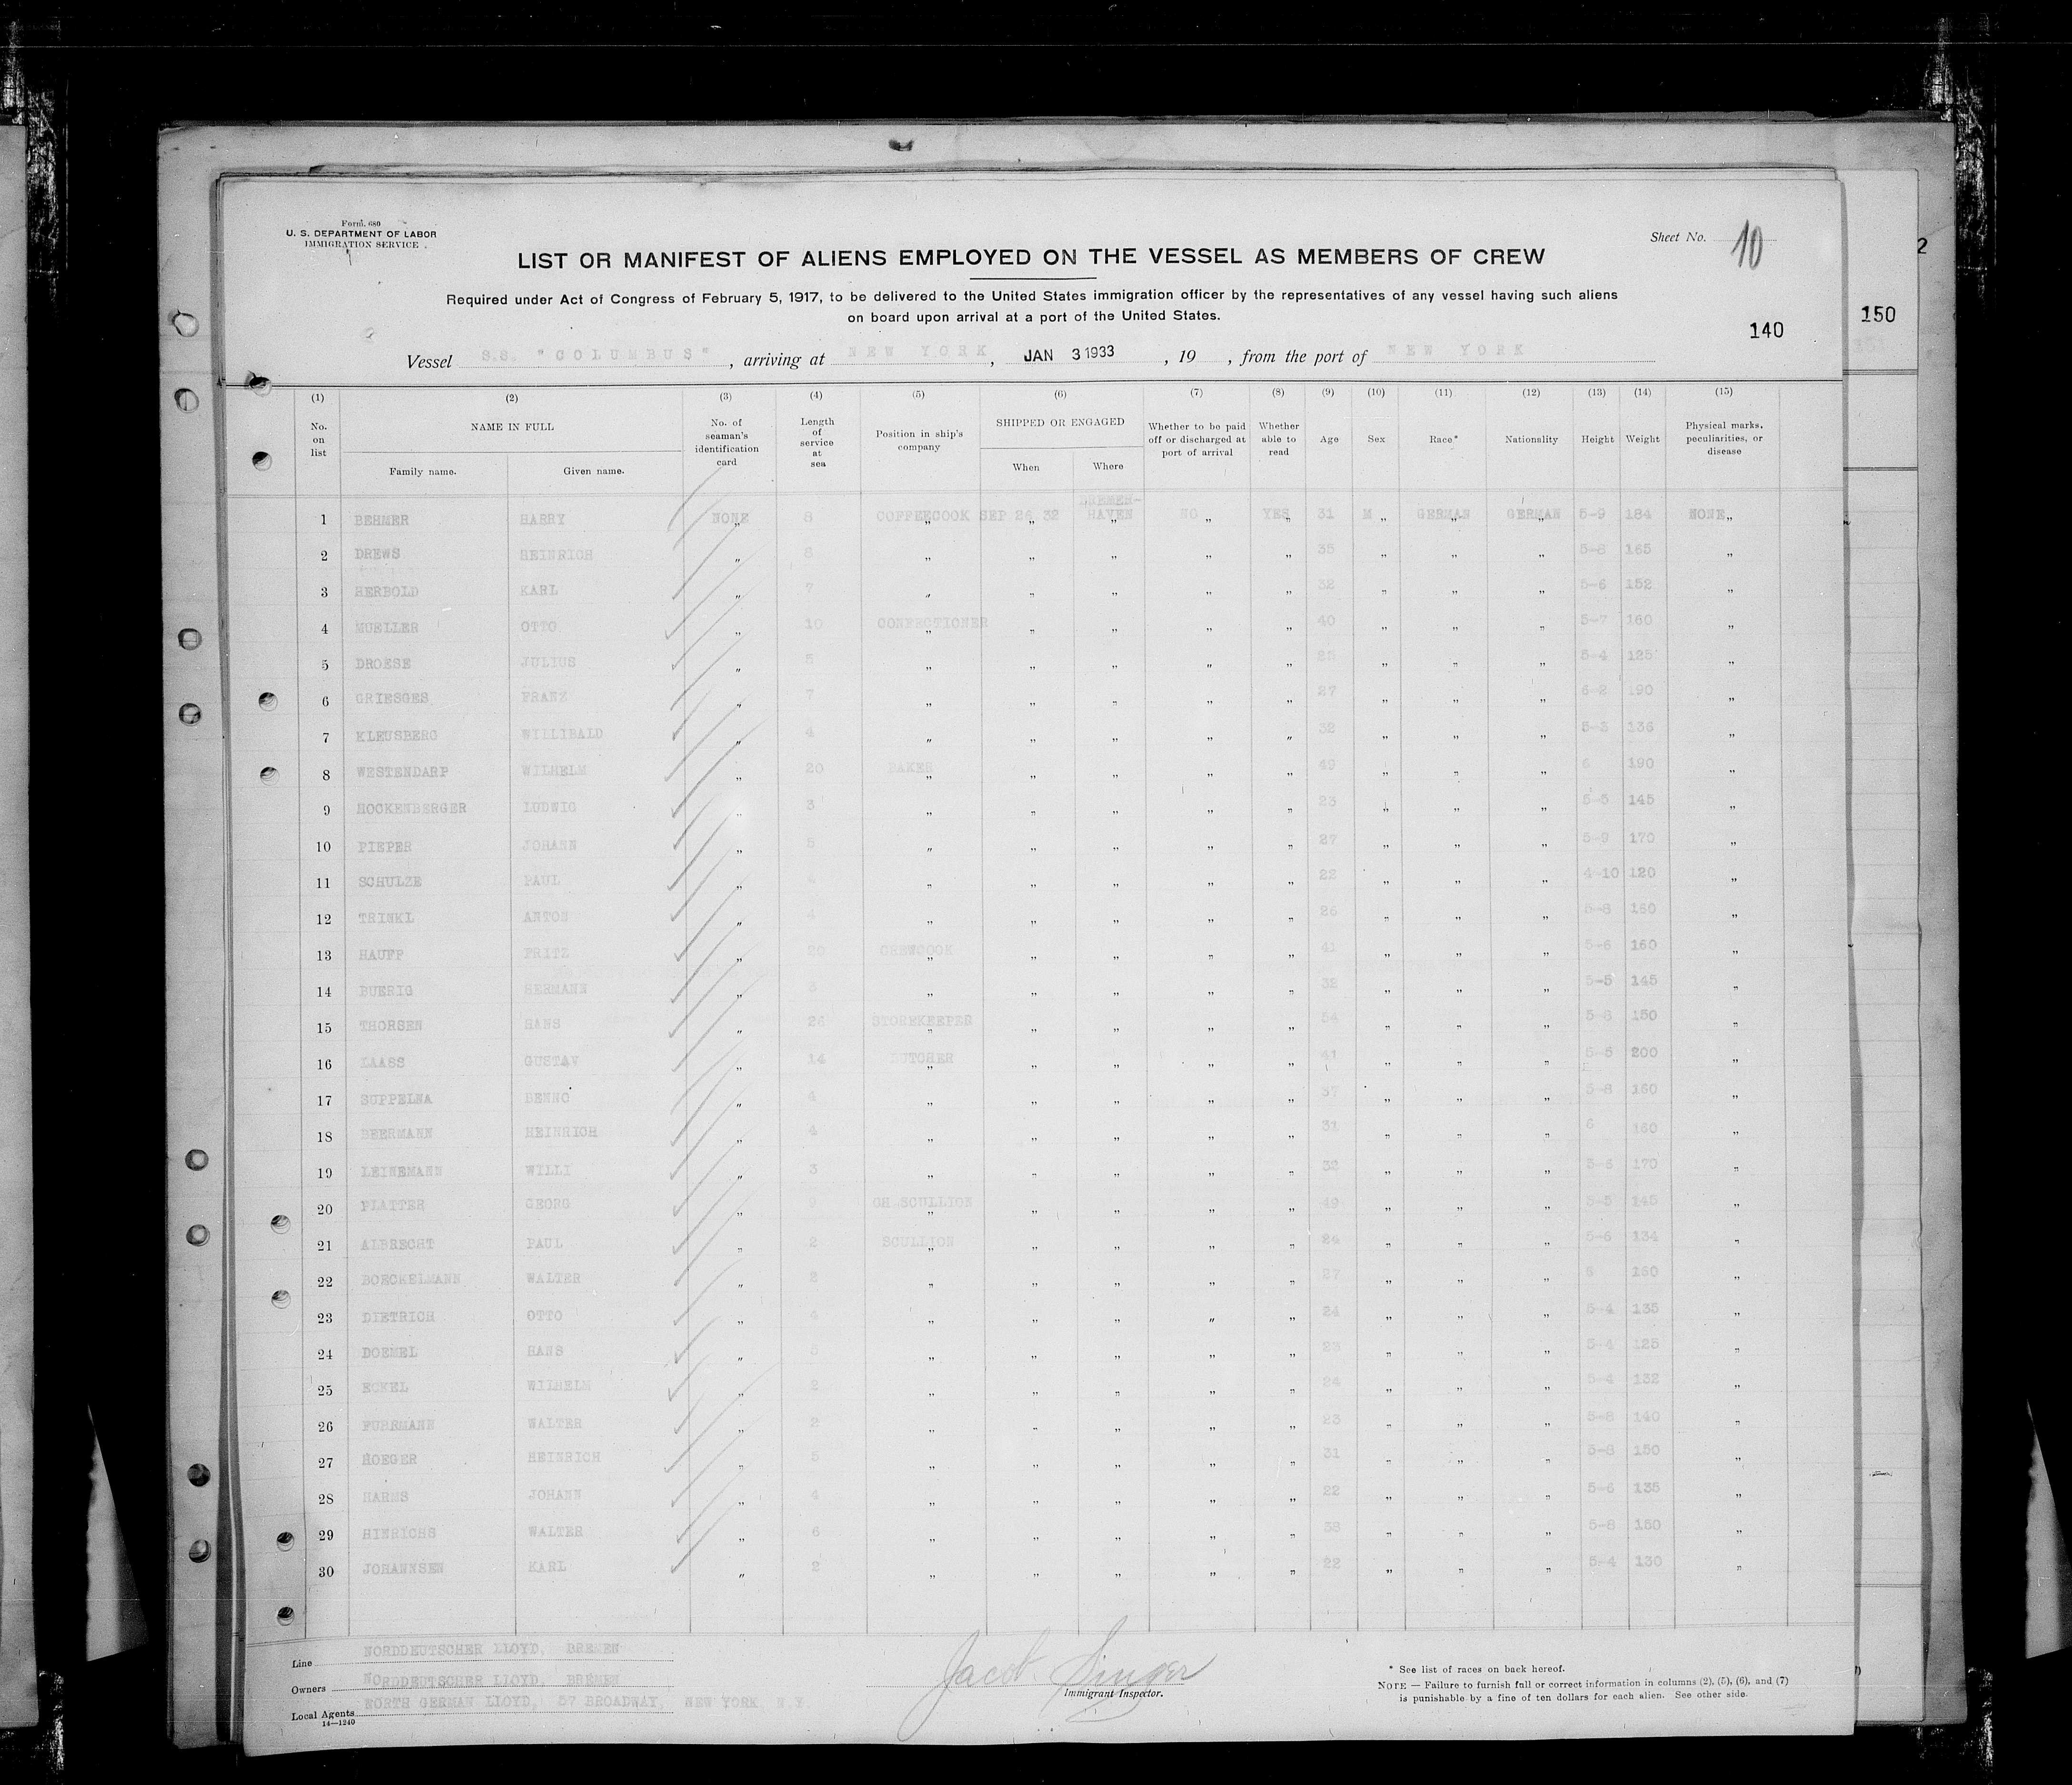 Form 680
U. S. DEPARTMENT OF LABOR
IMMIGRATION SERVICE
Sheet No. 10
LIST OR MANIFEST OF ALIENS EMPLOYED ON THE VESSEL AS MEMBERS OF CREW
Required under Act of Congress of February 5, 1917, to be delivered to the United States immigration officer by the representatives of any vessel having such aliens
on board upon arrival at a port of the United States.
140
150
2
Vessel S.S. "COLUMBUS", arriving at NEW YORK, JAN 3 1933, 19 , from the port of NEW YORK
(1) (2) (3) (4) (5) (6) (7) (8) (9) (10) (11) (12) (13) (14) (15)
No. on list
NAME IN FULL
Family name. Given name.
No. of seaman's identification card
Length of service at sea
Position in ship's company
SHIPPED OR ENGAGED
When Where
Whether to be paid off or discharged at port of arrival
Whether able to read
Age
Sex
Race*
Nationality
Height
Weight
Physical marks, peculiarities, or disease
1 BEHMER HARRY NONE 8 COFFEECOOK SEP 26 32 BREMER-HAVEN NO YES 31 M GERMAN GERMAN 5-9 184 NONE
2 DREWS HEINRICH " " " " " " 35 " " " 5-8 165 "
3 HERBOLD KARL " 7 " " " " " 32 " " " 5-6 152 "
4 MUELLER OTTO " 10 CONFECTIONER " " " " 40 " " " 5-7 160 "
5 DROESE JULIUS " 5 " " " " " 25 " " " 5-4 125 "
6 GRIESGES FRANZ " 7 " " " " " 27 " " " 6-2 190 "
7 KLEUSBERG WILLIBALD " 4 " " " " " 32 " " " 136 "
8 WESTENDARP WILHELM " 20 BAKER " " " " 49 " " " 6 190 "
9 HOCKENBERGER LUDWIG " 3 " " " " " 23 " " " 5-5 145 "
10 PIEPER JOHANN " 5 " " " " " 27 " " " 5-9 170 "
11 SCHULZE PAUL " " " " " " 22 " " " 4-10 120 "
12 TRINKL ANTON " " " " " " 26 " " " 5-8 "
13 HAUFF FRITZ " 20 CREWCOOK " " " " 41 " " " 5-6 160 "
14 BUERIG HERMANN " " " " " " 32 " " " 5-5 145 "
15 THORSEN HANS " 26 STOREKEEPER " " " " 54 " " " 150 "
16 LAASS GUSTAV " 14 BUTCHER " " " " 41 " " " 5-5 200 "
17 SUPPELNA BENNO " 4 " " " " " 37 " " " 5-8 160 "
18 BEERMANN HEINRICH " 4 " " " " " 31 " " " 6 "
19 LEINEMANN WILLI " 3 " " " " " 32 " " " 5-6 170 "
20 PLATTER GEORG " 9 CH.SCULLION " " " " 49 " " " 5-5 145 "
21 ALBRECHT PAUL " 2 SCULLION " " " " 24 " " " 5-6 134 "
22 BOECKELMANN WALTER " 2 " " " " " 27 " " " 160 "
23 DIETRICH OTTO " 4 " " " " " 24 " " " 5-4 135 "
24 DOEMEL HANS " " " " " " 23 " " " 5-4 125 "
25 ECKEL WILHELM " 2 " " " " " 24 " " " 5-4 132 "
26 FUHRMANN WALTER " 2 " " " " " 23 " " " 5-8 140 "
27 HOEGER HEINRICH " 5 " " " " " 31 " " " 5-8 150 "
28 HARMS JOHANN " 4 " " " " " 22 " " " 5-6 135 "
29 HINRICHS WALTER " 6 " " " " " 38 " " " 5-8 150 "
30 JOHANNSEN KARL " 2 " " " " " 22 " " " 5-4 130 "
Line NORDDEUTSCHER LLOYD, BREMEN
Owners NORDDEUTSCHER LLOYD, BREMEN
Local Agents NORTH GERMAN LLOYD, 57 BROADWAY, NEW YORK N.Y.
14—1240
Jacob Singer
Immigrant Inspector.
* See list of races on back hereof.
NOTE — Failure to furnish full or correct information in columns (2), (5), (6), and (7)
is punishable by a fine of ten dollars for each alien. See other side.